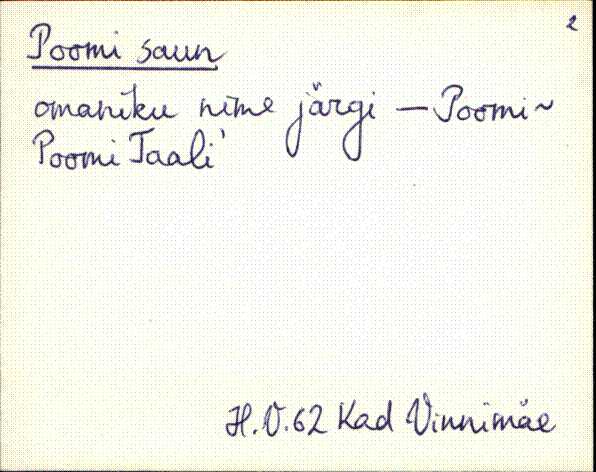 2
Poomi saun
omaniku nime järgi — Poomi ~
Poomi Taali'
H.V.62 Kad Vinnimäe